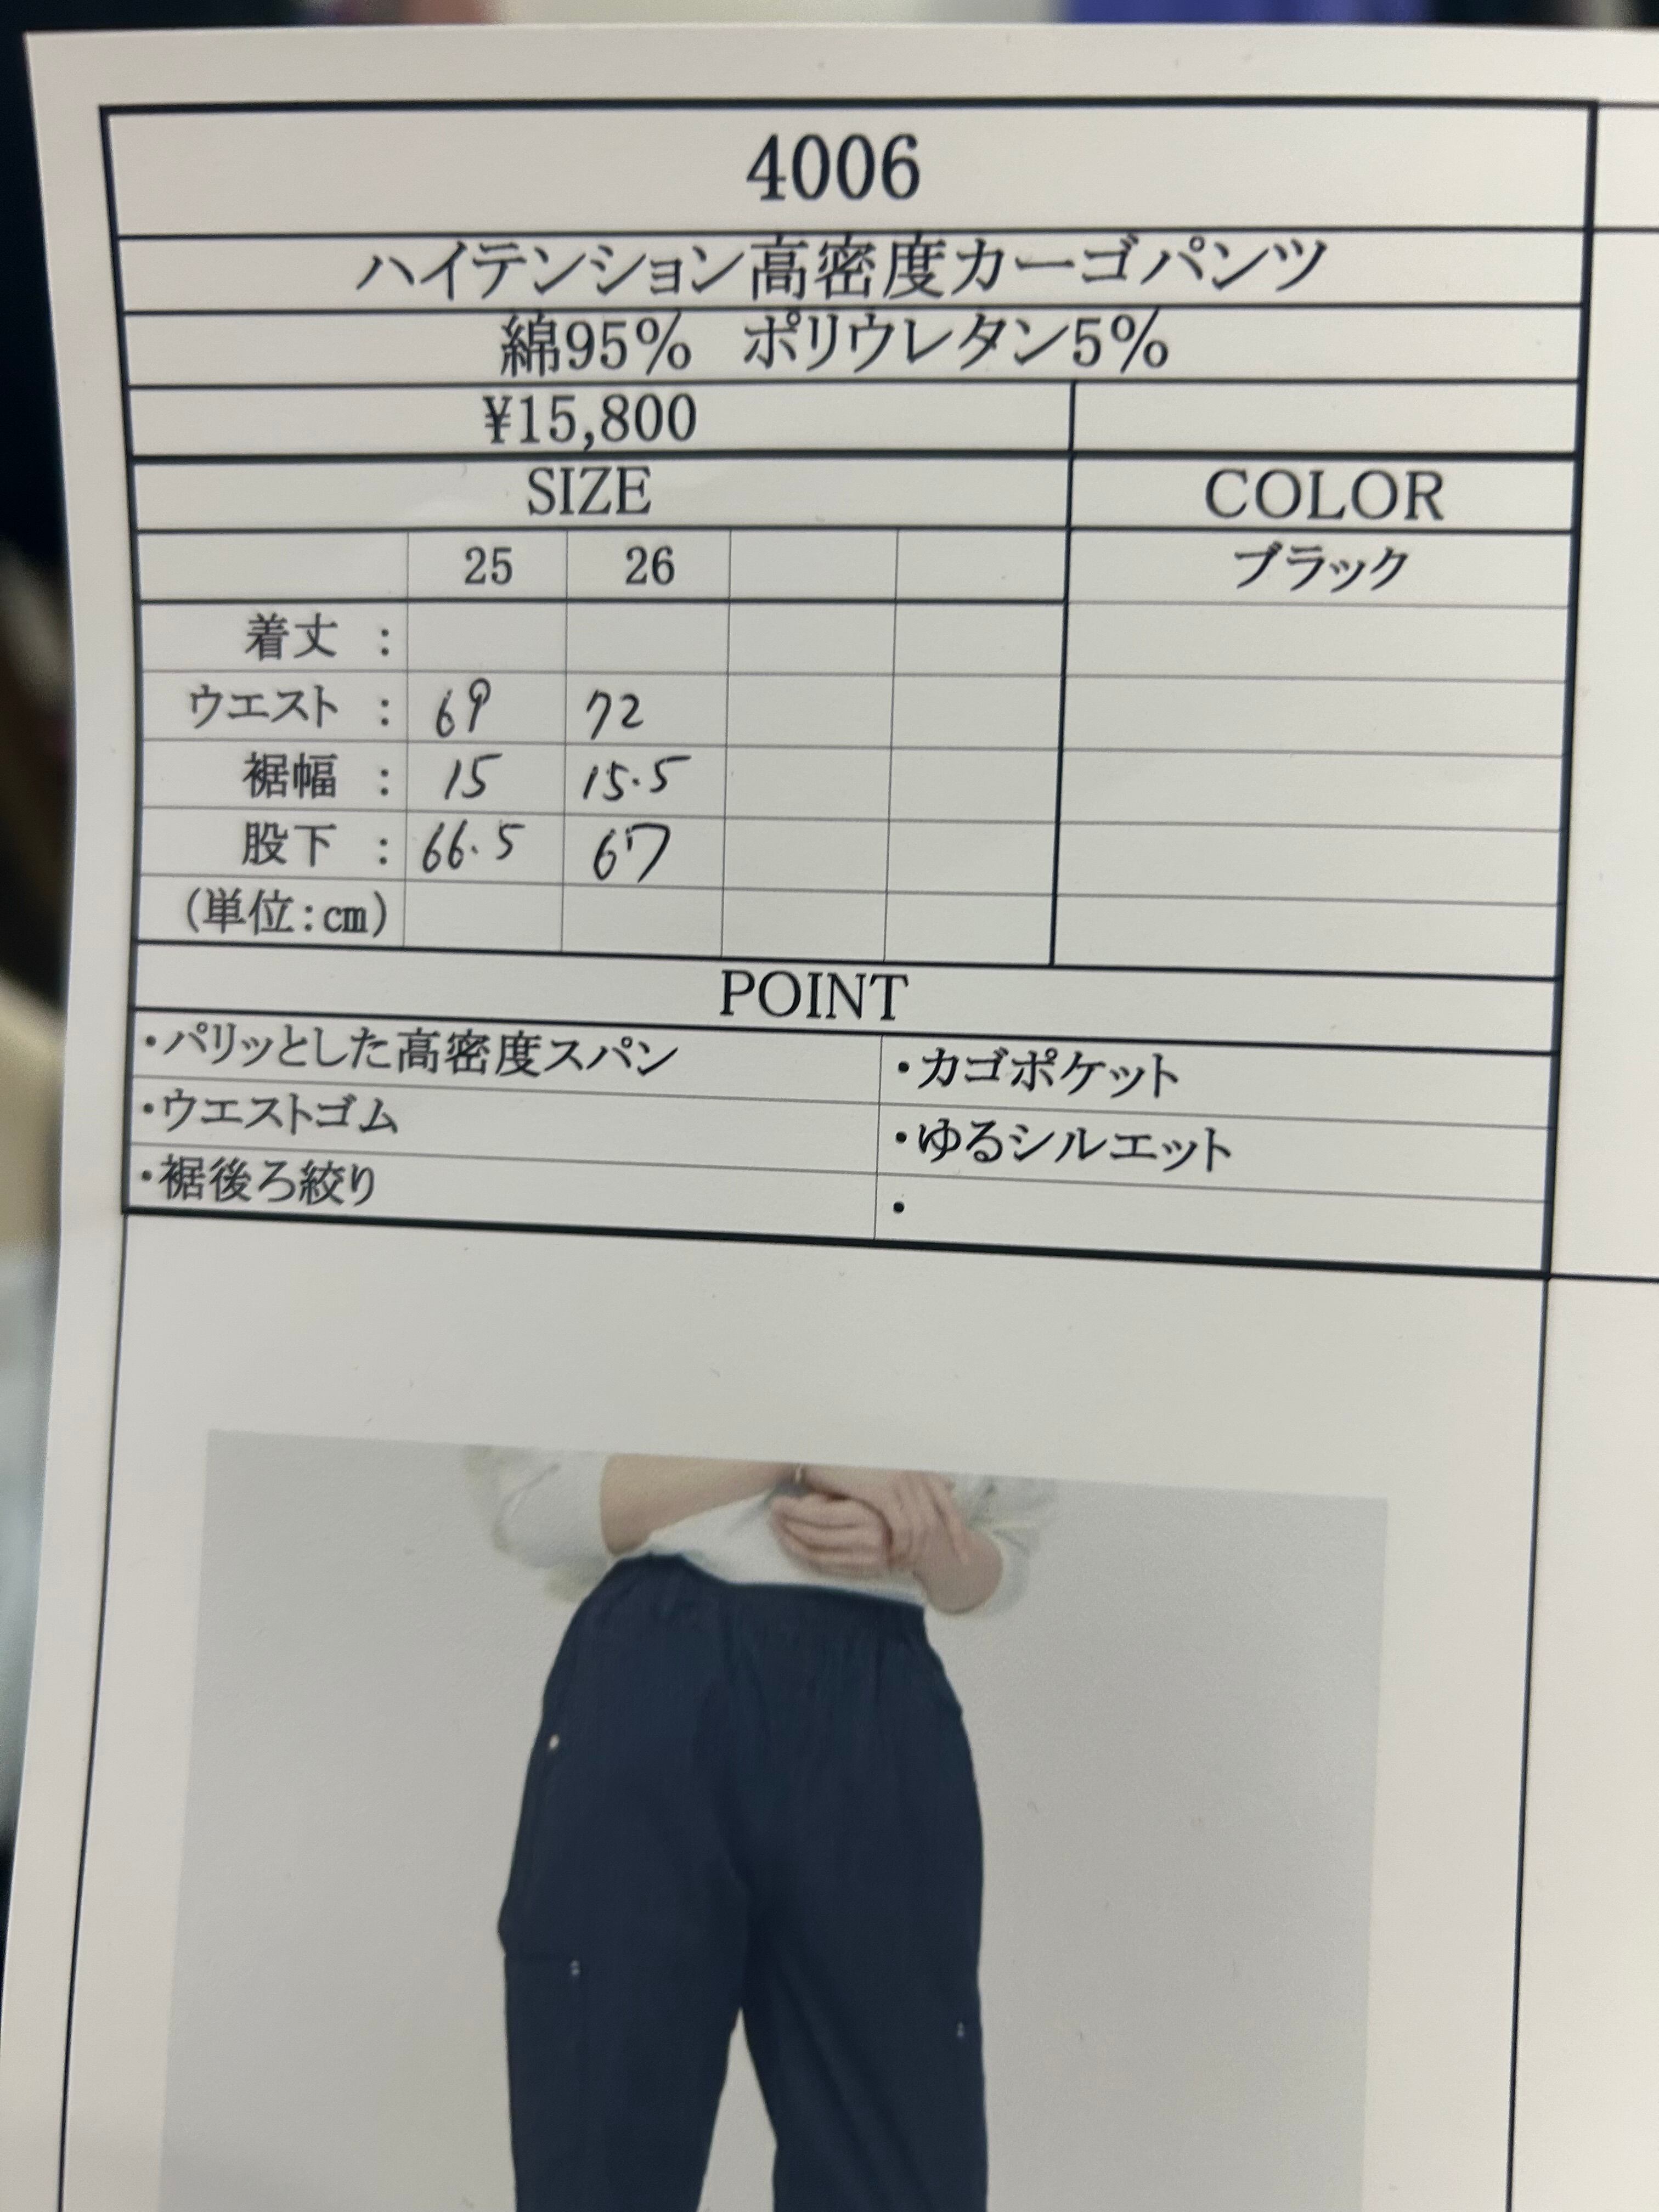 4006
ハイテンション高密度カーゴパンツ
綿95% ポリウレタン5%
¥15,800
SIZE COLOR
25 26 ブラック
着丈 :
ウエスト : 69 72
裾幅 : 15 15.5
股下 : 66.5 67
(単位:cm)
POINT
・パリッとした高密度スパン ・カゴポケット
・ウエストゴム ・ゆるシルエット
・裾後ろ絞り ・